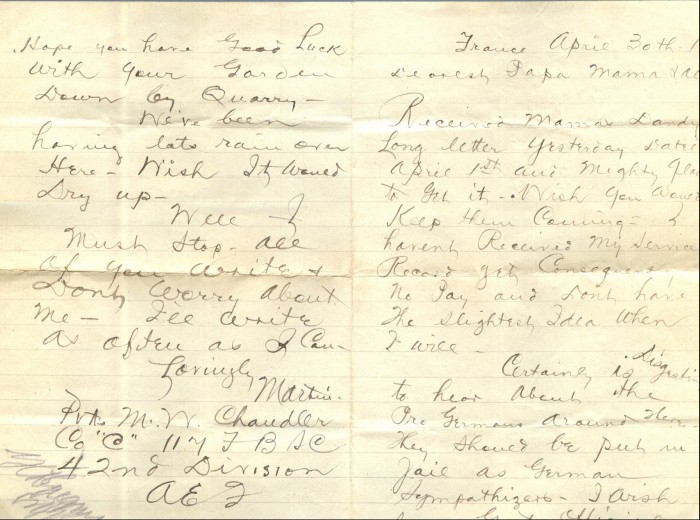 Hope you have Good Luck
With your Garden
Down by Quarry -
We've been
having lots rain over
Here - Wish It Would
Dry up -
Well - I
Must Stop - All
of you write &
Dont Worry About
Me - I'll write
as often as I Can -
Lovingly
Martin.
Pvt. M. W. Chandler
Co "C" 117 F B SC
42nd Division
A E F
France April 30th -
Dearest Papa Mama &
Received Mamas Dandy
Long letter Yesterday dated
April 1st and Mighty Glad
to Get it - Wish You Would
Keep them Coming - I
havent Received My Service
Record yet Consequently
No Pay and dont have
The Slightest Idea When
I will -
Certainly is disgusting
to hear About the
Pro Germans Around Here -
They Should be put in
Jail as German
Sympathizers - I wish